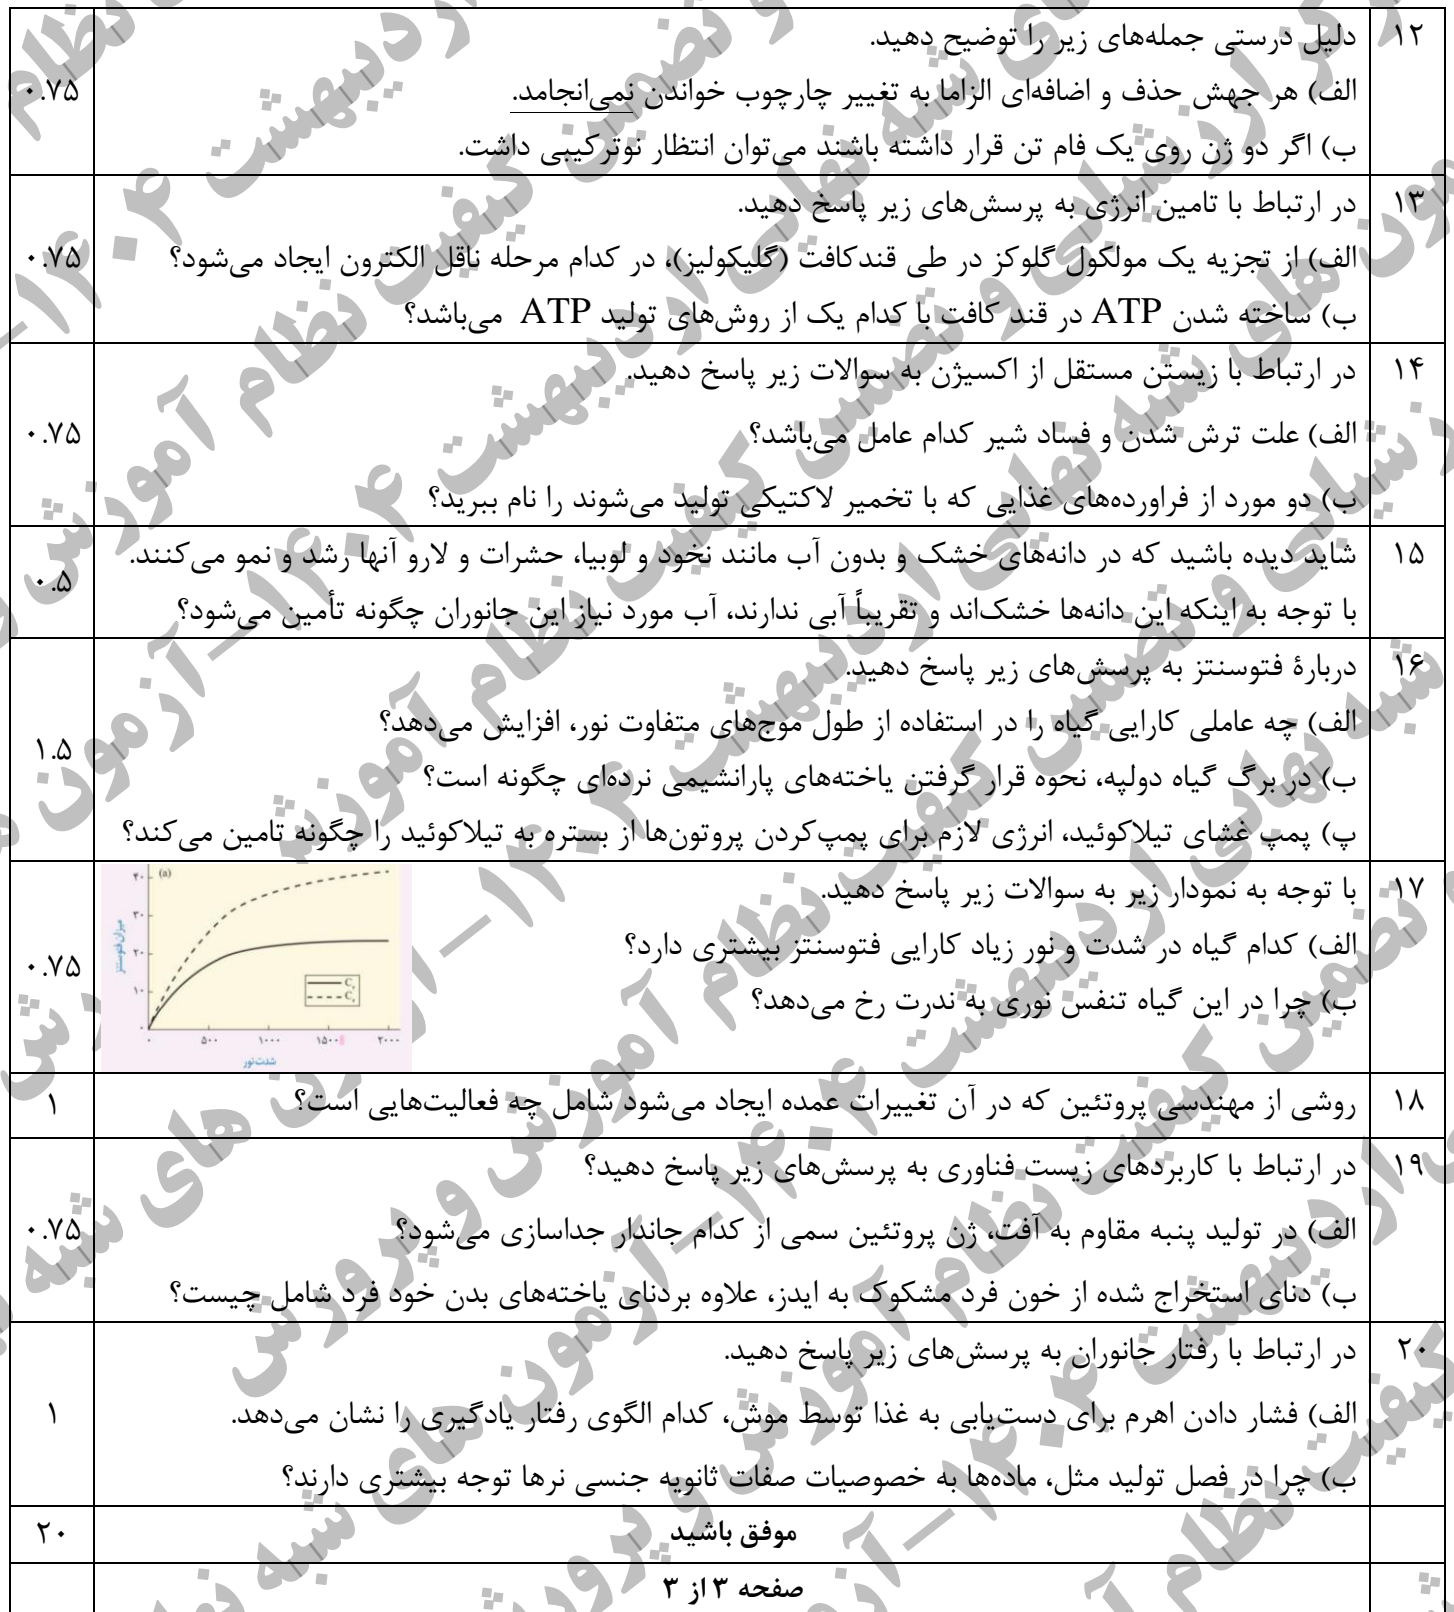 ۱۲ دلیل درستی جمله‌های زیر را توضیح دهید.
الف) هر جهش حذف و اضافه‌ای الزاما به تغییر چارچوب خواندن نمی‌انجامد.
۰.۷۵
ب) اگر دو ژن روی یک فام تن قرار داشته باشند می‌توان انتظار نوترکیبی داشت.
۱۳ در ارتباط با تامین انرژی به پرسش‌های زیر پاسخ دهید.
الف) از تجزیه یک مولکول گلوکز در طی قندکافت (گلیکولیز)، در کدام مرحله ناقل الکترون ایجاد می‌شود؟
۰.۷۵
ب) ساخته شدن ATP در قند کافت با کدام یک از روش‌های تولید ATP می‌باشد؟
۱۴ در ارتباط با زیستن مستقل از اکسیژن به سوالات زیر پاسخ دهید.
الف) علت ترش شدن و فساد شیر کدام عامل می‌باشد؟
۰.۷۵
ب) دو مورد از فراورده‌های غذایی که با تخمیر لاکتیکی تولید می‌شوند را نام ببرید؟
۱۵ شاید دیده باشید که در دانه‌های خشک و بدون آب مانند نخود و لوبیا، حشرات و لارو آنها رشد و نمو می‌کنند.
۰.۵
با توجه به اینکه این دانه‌ها خشک‌اند و تقریباً آبی ندارند، آب مورد نیاز این جانوران چگونه تأمین می‌شود؟
۱۶ دربارهٔ فتوسنتز به پرسش‌های زیر پاسخ دهید.
الف) چه عاملی کارایی گیاه را در استفاده از طول موج‌های متفاوت نور، افزایش می‌دهد؟
۱.۵
ب) در برگ گیاه دولپه، نحوه قرار گرفتن یاخته‌های پارانشیمی نرده‌ای چگونه است؟
پ) پمپ غشای تیلاکوئید، انرژی لازم برای پمپ‌کردن پروتون‌ها از بستره به تیلاکوئید را چگونه تامین می‌کند؟
۱۷ با توجه به نمودار زیر به سوالات زیر پاسخ دهید.
الف) کدام گیاه در شدت و نور زیاد کارایی فتوسنتز بیشتری دارد؟
۰.۷۵
ب) چرا در این گیاه تنفس نوری به ندرت رخ می‌دهد؟
(a)
۴۰
۳۰
۲۰
۱۰
۰
میزان فتوسنتز
C۳
C۴
۰ ۵۰۰ ۱۰۰۰ ۱۵۰۰ ۲۰۰۰
شدت نور
۱۸ روشی از مهندسی پروتئین که در آن تغییرات عمده ایجاد می‌شود شامل چه فعالیت‌هایی است؟ ۱
۱۹ در ارتباط با کاربردهای زیست فناوری به پرسش‌های زیر پاسخ دهید؟
الف) در تولید پنبه مقاوم به آفت، ژن پروتئین سمی از کدام جاندار جداسازی می‌شود؟
۰.۷۵
ب) دنای استخراج شده از خون فرد مشکوک به ایدز، علاوه بردنای یاخته‌های بدن خود فرد شامل چیست؟
۲۰ در ارتباط با رفتار جانوران به پرسش‌های زیر پاسخ دهید.
الف) فشار دادن اهرم برای دست‌یابی به غذا توسط موش، کدام الگوی رفتار یادگیری را نشان می‌دهد.
۱
ب) چرا در فصل تولید مثل، ماده‌ها به خصوصیات صفات ثانویه جنسی نرها توجه بیشتری دارند؟
موفق باشید ۲۰
صفحه ۳ از ۳